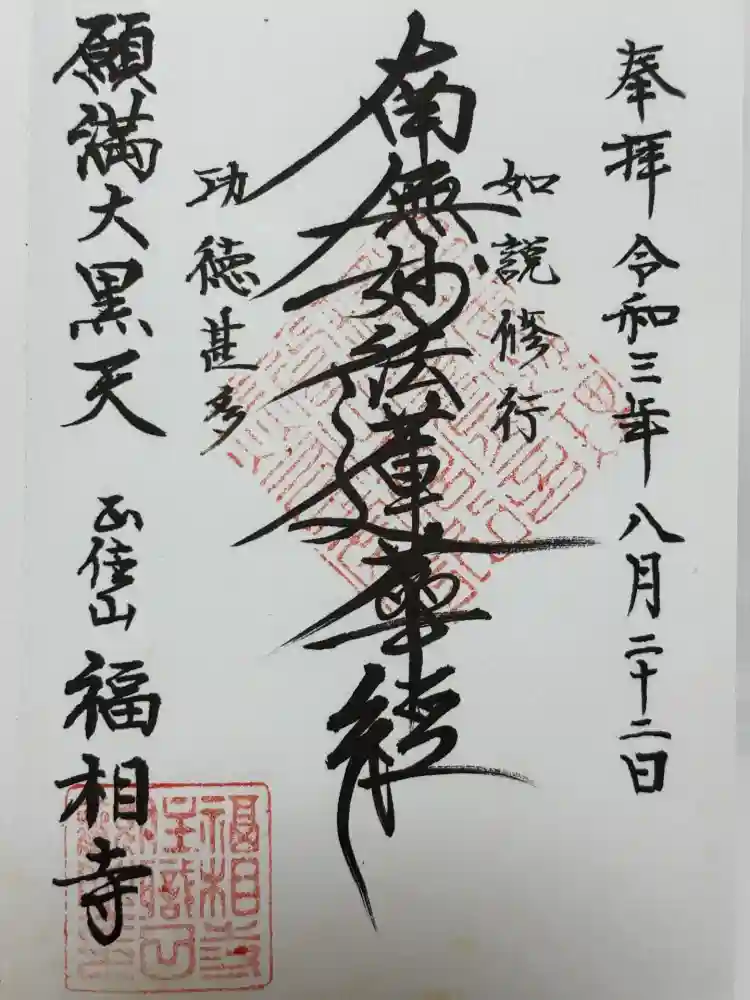 奉拝 令和三年八月二十二日
如説修行
南無妙法蓮華経
功徳甚多
願満大黒天
正住山 福相寺
福相寺
住職